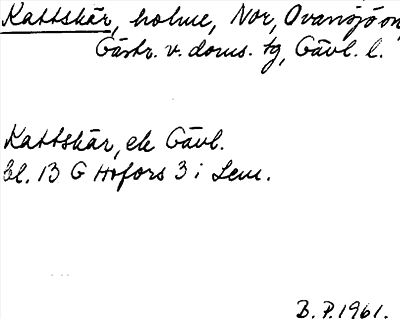 Kattskär, holme, Nor, Ovansjö sn,
Gästr. v. doms. tg, Gävl. l.
Kattskär, ek Gävl.
bl. 13 G Hofors 3 i Lem.
B. P. 1961.